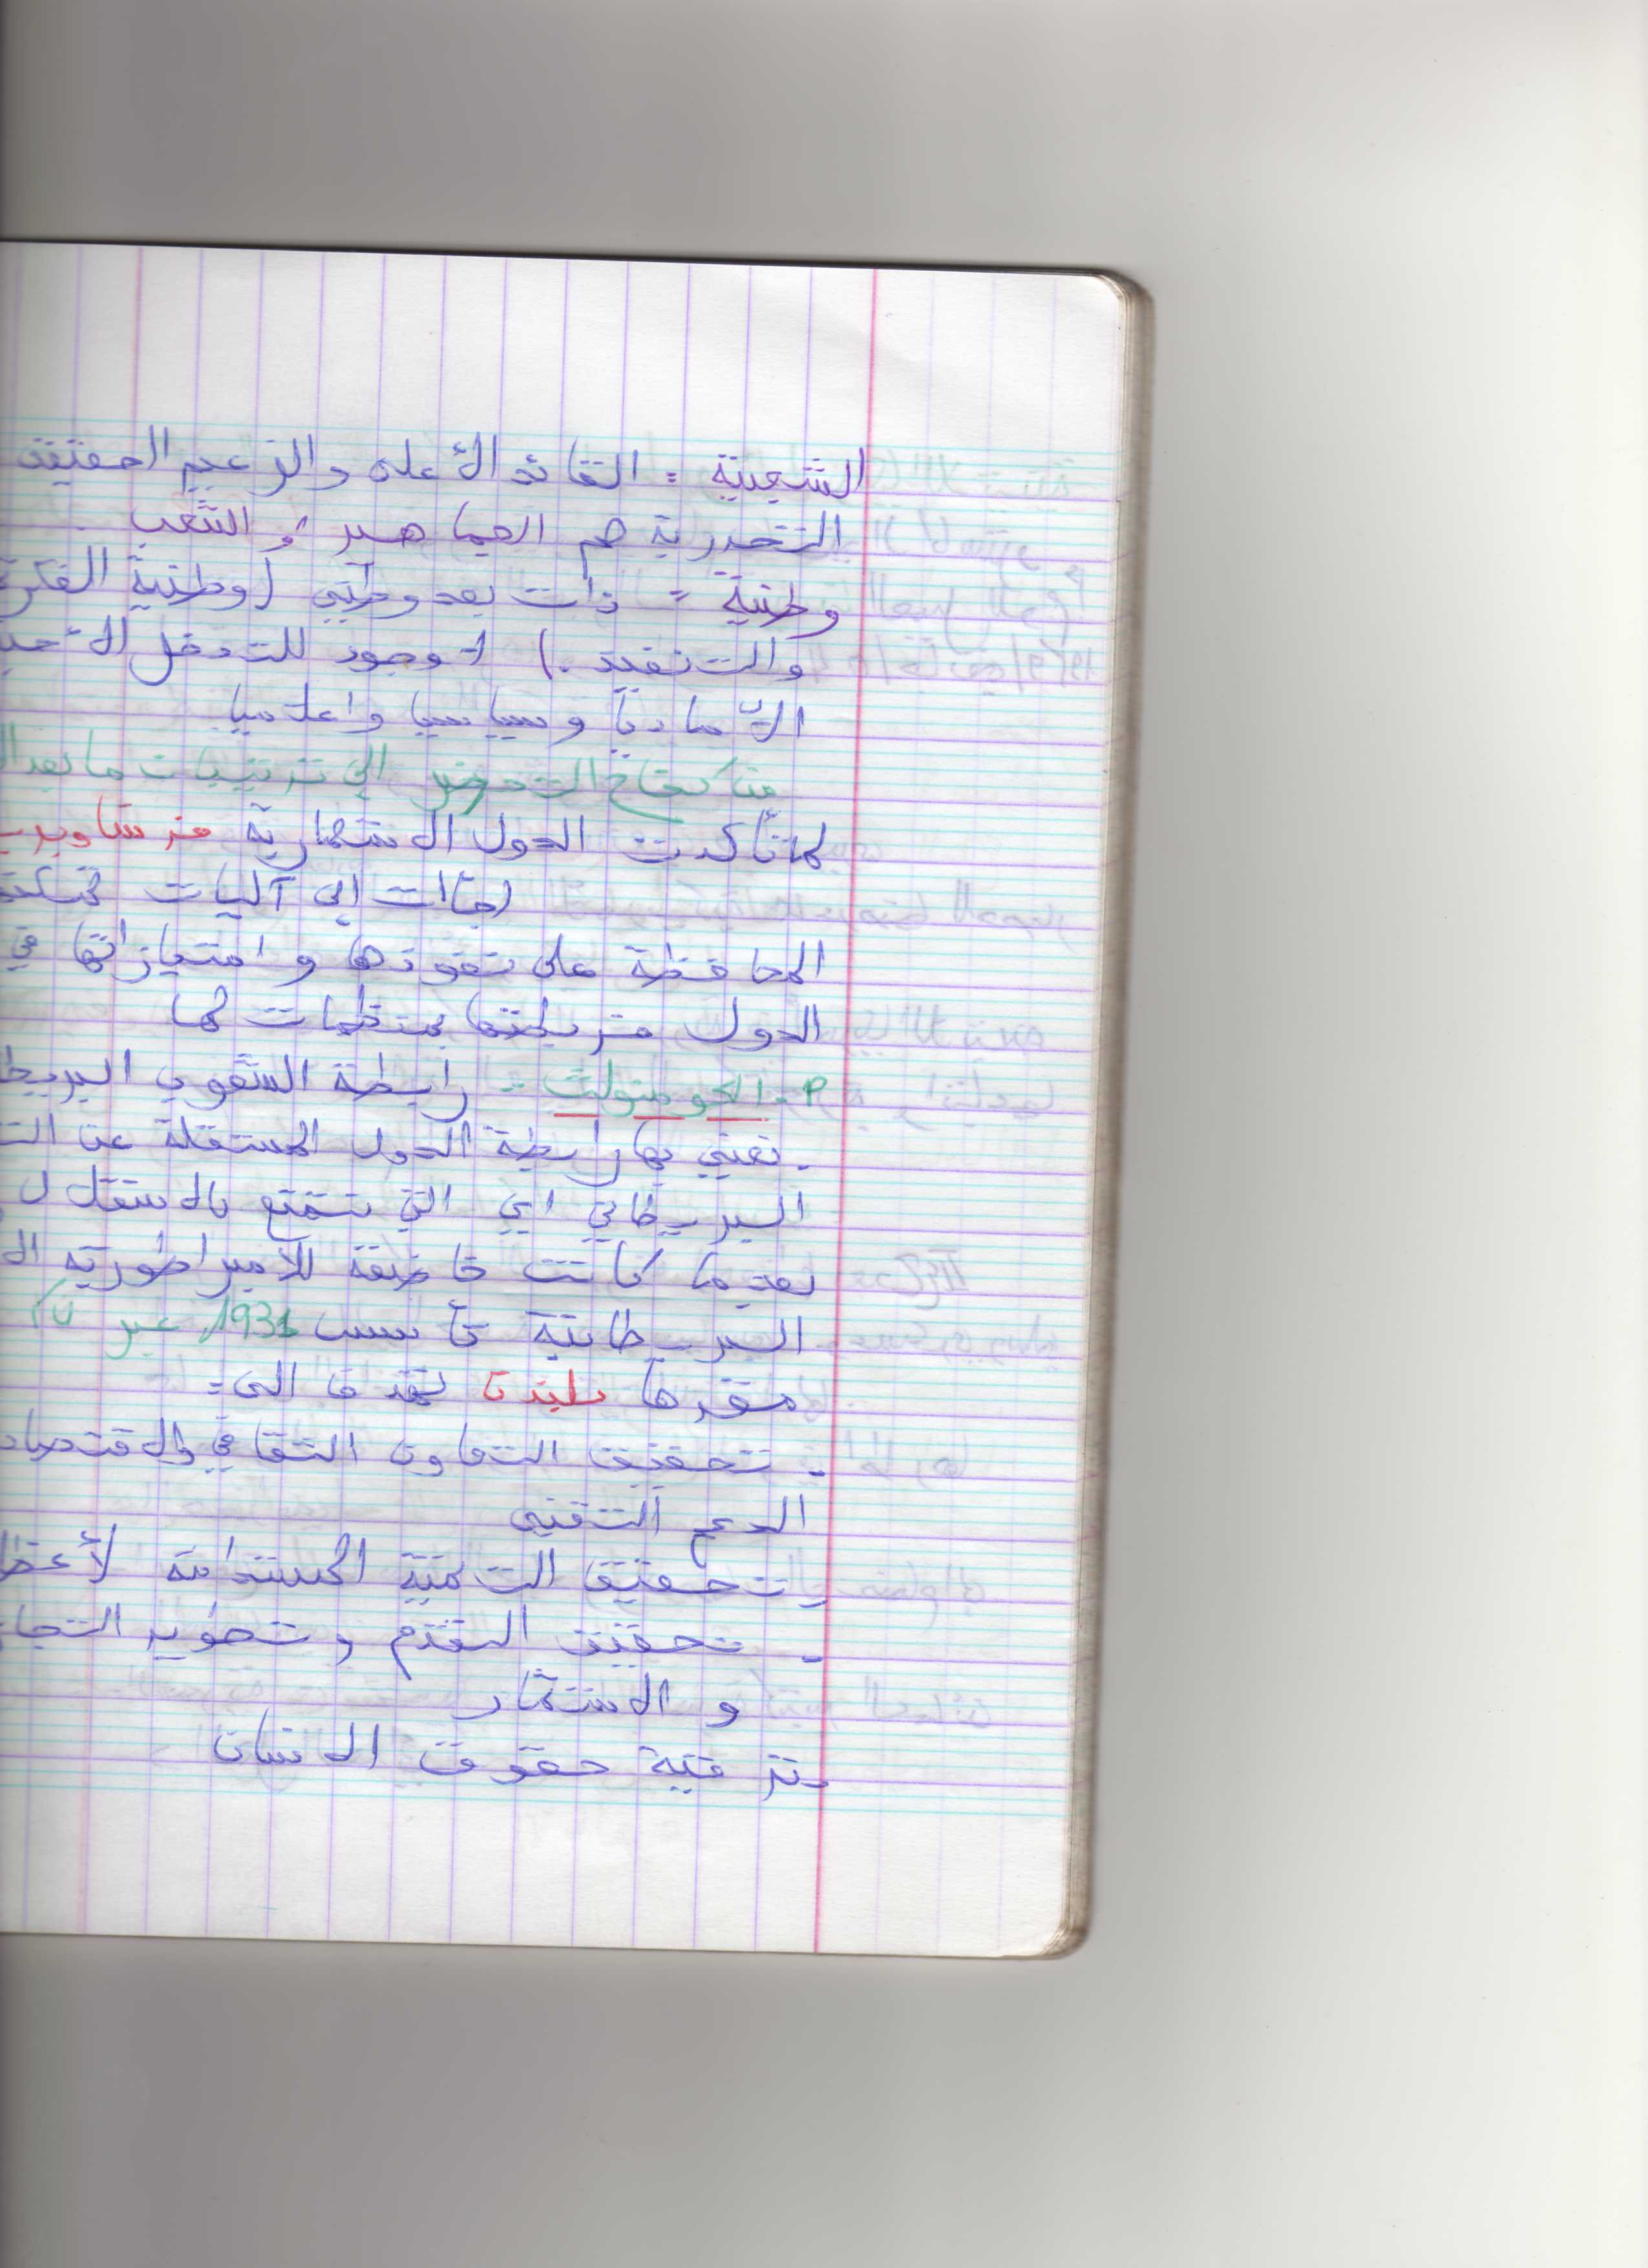 الشعبية = القائد الأعلى والزعيم الحقيقي
التحررية هم الجماهير و الشعب
وطنية = ذات بعد وطني (وطنية الفكرة
والتنفيذ.) لا وجود للتدخل الأجن
الا ماديا وسياسيا واعلاميا
من كفاح التحرر إلى ترتيبات ما بعد ال
لما تأكدت الدول الاستعمارية من
لجأت إلى آليات تمكن
المحافظة على نفوذها و امتيازاتها في
الدول من ربطها بمنظمات لها
الكومنولث = رابطة الشعوب البريط
- نعني بها رابطة الدول المستقلة عن الت
البريطاني اي التي تتمتع بالاستقلال
بعد ما كانت خاضعة للامبراطورية ال
البريطانية تأسس 1931 عبر
مقرها بلندن تهدف الى =
- تحقيق التعاون الثقافي والاقتصاد
الدعم التقني
- تحقيق التنمية المستدامة لأعضا
- تحقيق التقدم وتطوير التجا
و الاستثمار
- ترقية حقوق الانسان